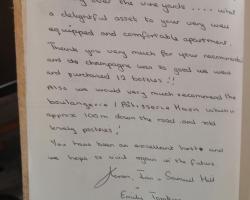 over the vine yards .... what
a delightful asset to your very well
equipped and comfortable apartment.
Thank you very much for your recommend
and de champagne was so good we went
and purchased 12 bottles !!
Also we would very much recommend the
boulangerie / Pâtisserie
approx 100m down the road and sold
lovely pastries!
You have been an excellent host and
we hope to visit again in the future
Ian Samuel Hall
Emily